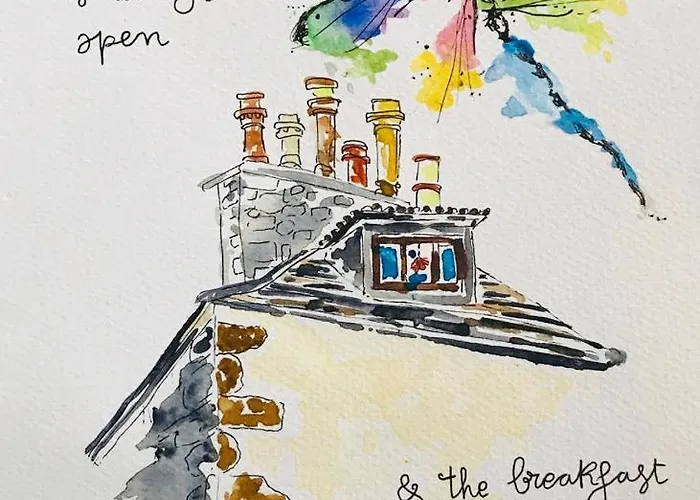 open
& the breakfast